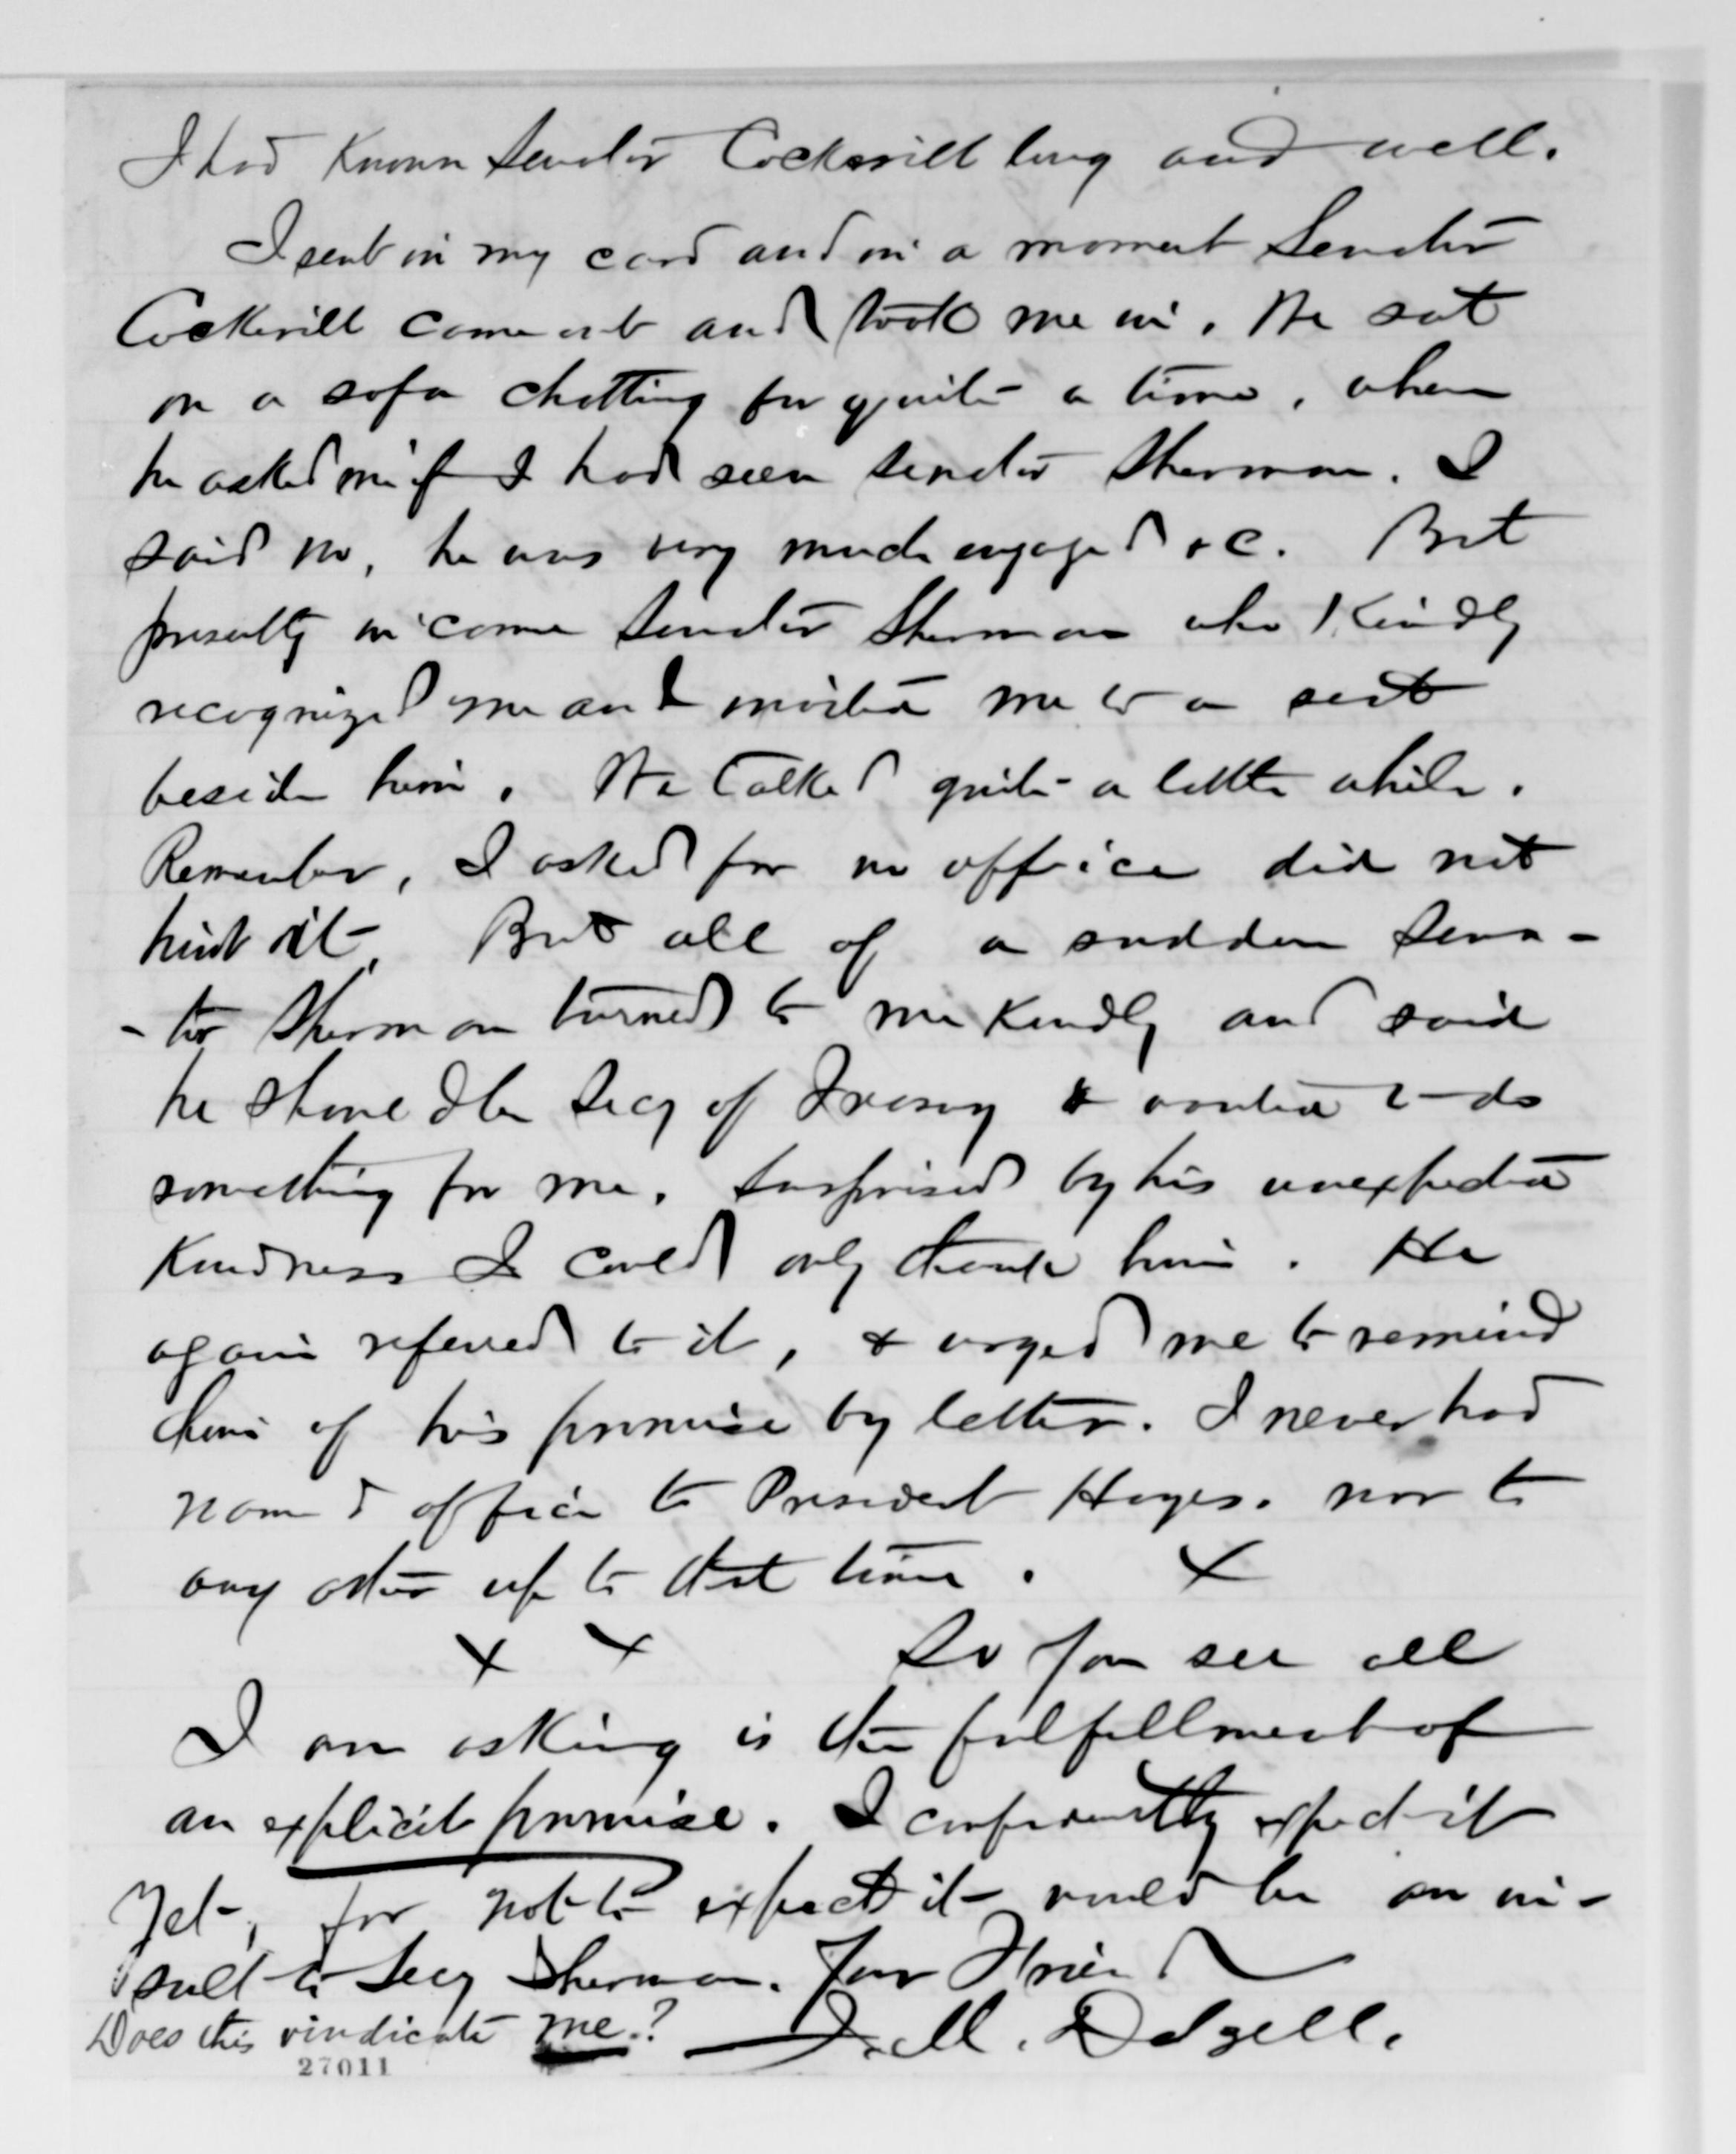 I had known Senator Cockerill long and well.
I sent in my card and in a moment Senator
Cockerill came out and took me in. We sat
on a sofa chatting for quite a time, when
he asked me if I had seen Senator Sherman. I
said no, he was very much engaged &c. But
presently in came Senator Sherman who kindly
recognized me and invited me to a seat
beside him. We talked quite a little while.
Remember, I asked for no office did not
hint it. But all of a sudden Sena-
-tor Sherman turned to me kindly and said
he should be Secy of Treasy & wanted to do
something for me. Surprised by his unexpected
kindness I could only thank him. He
again referred to it, & urged me to remind
him of his promise by letter. I never had
named office to President Hayes. nor to
any other up to that time. X
X X So you see all
I am asking is the fulfillment of
an explicit promise. I confidently expect it
yet, for not to expect it would be an in-
sult to Secy Sherman. Your Friend
Does this vindicate me? J. M. Dalzell.
27011